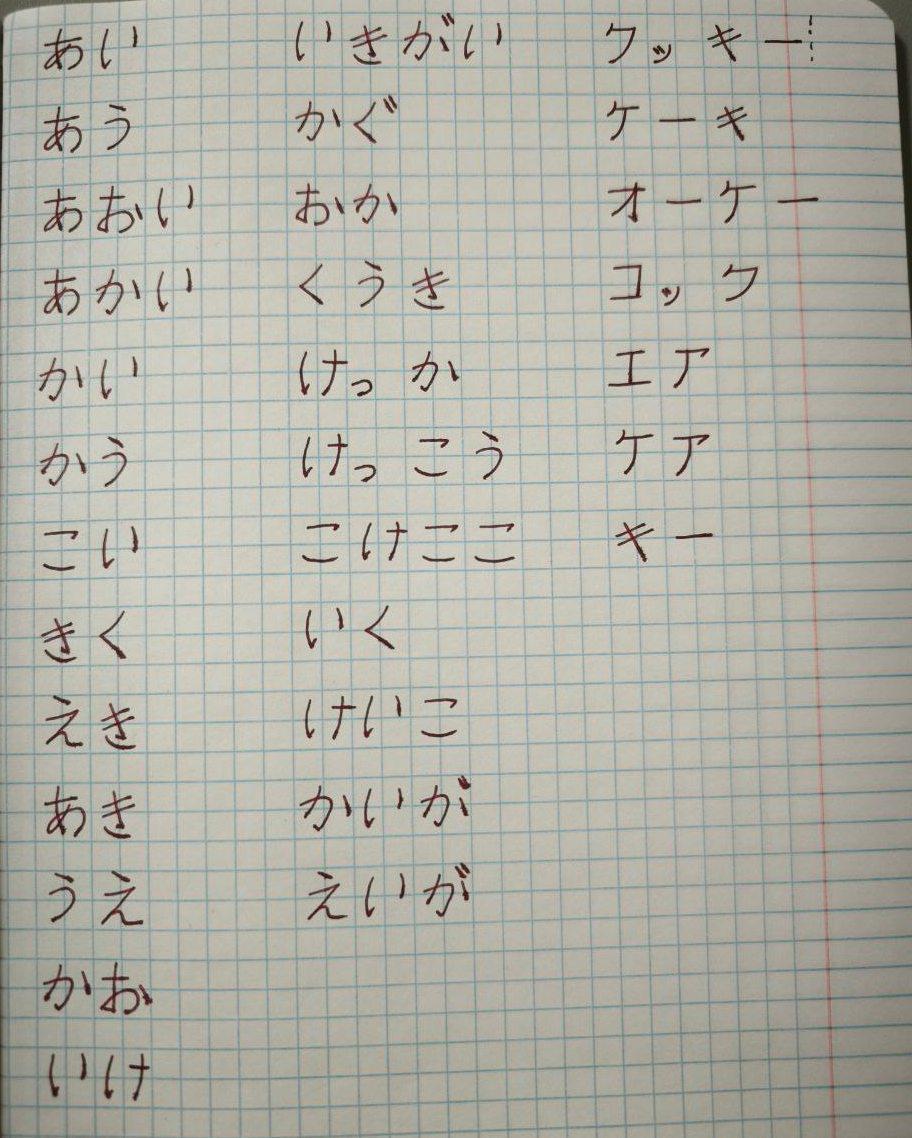 あい
あう
あおい
あかい
かい
かう
こい
きく
えき
あき
うえ
かお
いけ
いきがい
かぐ
おか
くうき
けっか
けっこう
こけここ
いく
けいこ
かいが
えいが
クッキー
ケーキ
オーケー
コック
エア
ケア
キー